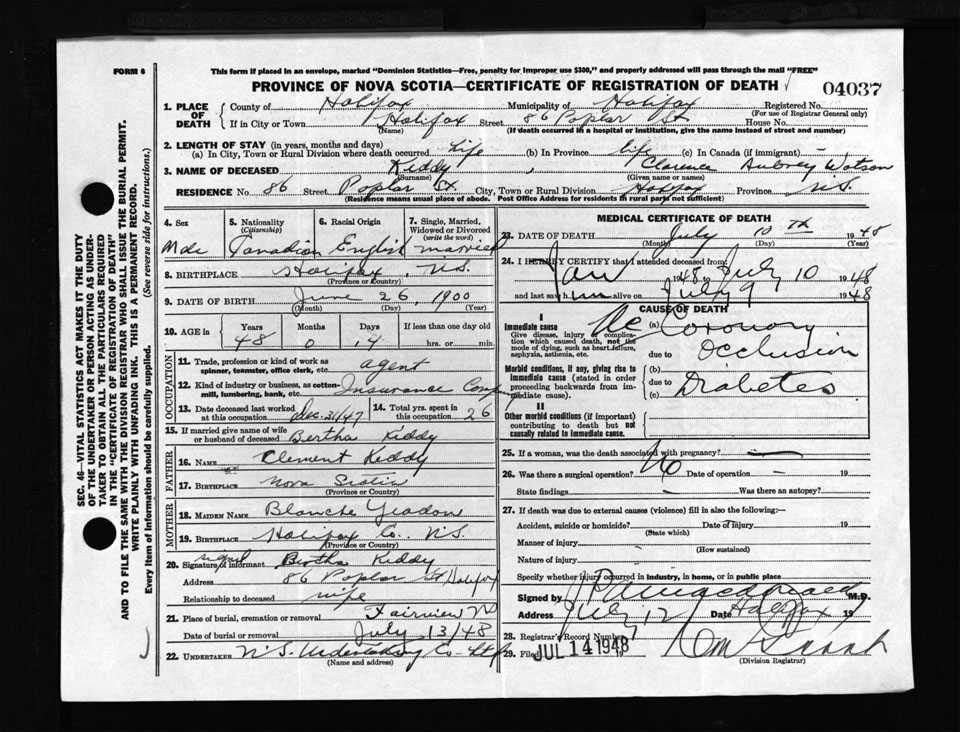 FORM 6
This form if placed in an envelope, marked "Dominion Statistics—Free, penalty for improper use $300," and properly addressed will pass through the mail "FREE"
PROVINCE OF NOVA SCOTIA—CERTIFICATE OF REGISTRATION OF DEATH
04037
1. PLACE OF DEATH
County of Halifax Municipality of Halifax Registered No.
(For use of Registrar General only)
If in City or Town Halifax Street 86 Poplar St House No.
(Name) (If death occurred in a hospital or institution, give the name instead of street and number)
2. LENGTH OF STAY (in years, months and days)
(a) In City, Town or Rural Division where death occurred Life (b) In Province life (c) In Canada (if immigrant) —
3. NAME OF DECEASED Kiddy, Clarence Aubrey Watson
(Surname) (Given name or names)
RESIDENCE No. 86 Street Poplar St. City, Town or Rural Division Halifax Province N.S.
(Residence means usual place of abode. Post Office Address for residents in rural parts not sufficient)
4. Sex
Male
5. Nationality
(Citizenship)
Canadian
6. Racial Origin
English
7. Single, Married, Widowed or Divorced
(write the word)
married
8. BIRTHPLACE Halifax, N.S.
(Province or Country)
9. DATE OF BIRTH June 26, 1900
(Month) (Day) (Year)
10. AGE in
Years Months Days If less than one day old
48 0 14 hrs. or min.
OCCUPATION
11. Trade, profession or kind of work as spinner, teamster, office clerk, etc. agent
12. Kind of industry or business, as cotton-mill, lumbering, bank, etc. Insurance Company
13. Date deceased last worked at this occupation Dec. 31/47
14. Total yrs. spent in this occupation 26
15. If married give name of wife or husband of deceased Bertha Kiddy
FATHER
16. NAME Clement Kiddy
17. BIRTHPLACE Nova Scotia
(Province or Country)
MOTHER
18. MAIDEN NAME Blanche Yeadon
19. BIRTHPLACE Halifax Co. N.S.
(Province or Country)
signed
20. Signature of informant Bertha Kiddy
Address 86 Poplar St Halifax
Relationship to deceased wife
21. Place of burial, cremation or removal Fairview NS
Date of burial or removal July 13/48
22. UNDERTAKER N.S. Undertaking Co. Ltd
(Name and address)
MEDICAL CERTIFICATE OF DEATH
23. DATE OF DEATH July 10th 1948
(Month) (Day) (Year)
24. I HEREBY CERTIFY that I attended deceased from:
Jan 1948 to July 10 1948
and last saw him alive on July 9 1948
CAUSE OF DEATH
I
Immediate cause
Give disease, injury or complication which caused death, not the mode of dying, such as heart failure, asphyxia, asthenia, etc.
(a) Ac Coronary
due to Occlusion
Morbid conditions, if any, giving rise to immediate cause (stated in order proceeding backwards from immediate cause).
(b)
due to Diabetes
(c)
II
Other morbid conditions (if important) contributing to death but not causally related to immediate cause.
25. If a woman, was the death associated with pregnancy? —
26. Was there a surgical operation? No Date of operation — 19
State findings — Was there an autopsy?
27. If death was due to external causes (violence) fill in also the following:—
Accident, suicide or homicide? Date of injury 19
(State which)
Manner of injury
(How sustained)
Nature of injury
Specify whether injury occurred in industry, in home, or in public place
Signed by M.D.
Address July 12 Date Halifax 19
28. Registrar's Record Number
29. Filed JUL 14 1948
(Division Registrar)
SEC. 46—VITAL STATISTICS ACT MAKES IT THE DUTY
OF THE UNDERTAKER OR PERSON ACTING AS UNDER-
TAKER TO OBTAIN ALL THE PARTICULARS REQUIRED
IN THE "CERTIFICATE OF REGISTRATION OF DEATH"
AND TO FILE THE SAME WITH THE DIVISION REGISTRAR WHO SHALL ISSUE THE BURIAL PERMIT.
WRITE PLAINLY WITH UNFADING INK. THIS IS A PERMANENT RECORD.
Every item of information should be carefully supplied. (See reverse side for instructions.)